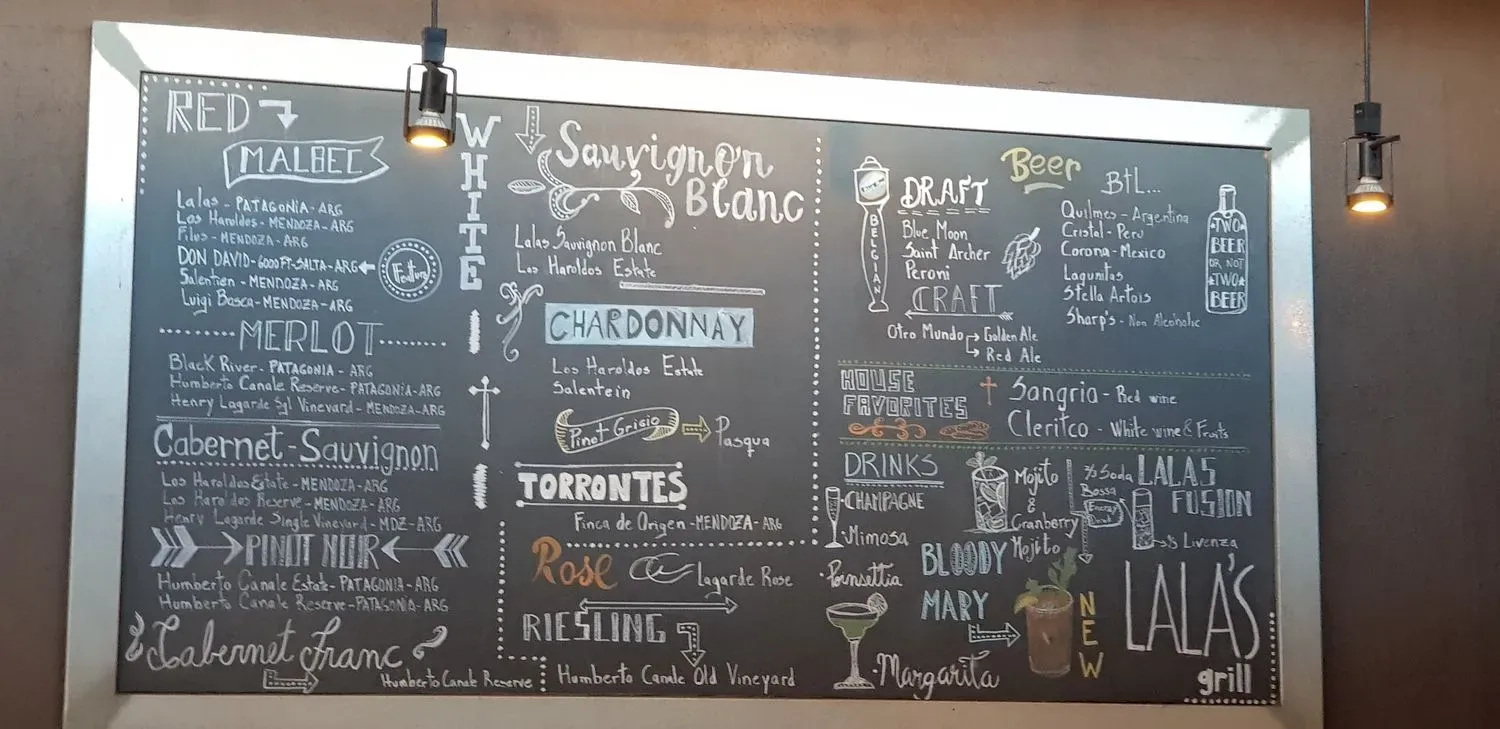 RED
MALBEC
Lalas - PATAGONIA - ARG
Los Haroldos - MENDOZA - ARG
Filus - MENDOZA - ARG
DON DAVID - 6000 FT - SALTA - ARG
Salentien - MENDOZA - ARG
Luigi Bosca - MENDOZA - ARG
MERLOT
Black River - PATAGONIA - ARG
Humberto Canale Reserve - PATAGONIA - ARG
Henry Lagarde Sgl Vineyard - MENDOZA - ARG
Cabernet - Sauvignon
Los Haroldos Estate - MENDOZA - ARG
Los Haroldos Reserve - MENDOZA - ARG
Henry Lagarde Single Vineyard - MDZ - ARG
PINOT NOIR
Humberto Canale Estate - PATAGONIA - ARG
Humberto Canale Reserve - PATAGONIA - ARG
Cabernet Franc
Humberto Canale Reserve
WHITE
Sauvignon
Blanc
Lalas Sauvignon Blanc
Los Haroldos Estate
CHARDONNAY
Los Haroldos Estate
Salentein
Pinot Grigio
Pasqua
TORRONTES
Finca de Origen - MENDOZA - ARG
Rose
Lagarde Rose
RIESLING
Humberto Canale Old Vineyard
Beer
BELGIAN
DRAFT
Blue Moon
Saint Archer
Peroni
CRAFT
Otro Mundo
Golden Ale
Red Ale
BtL...
Quilmes - Argentina
Cristal - Peru
Corona - Mexico
Lagunitas
Stella Artois
Sharp's - Non Alcoholic
TWO
BEER
OR NOT
TWO
BEER
HOUSE
FAVORITES
Sangria - Red wine
Cleritco - White wine & Fruits
DRINKS
CHAMPAGNE
Mimosa
Poinsettia
Margarita
Mojito
&
Cranberry
Mojito
BLOODY
MARY
NEW
LALAS
FUSION
Soda
Bossa
Energy
Drink
Livenza
LALA'S
grill